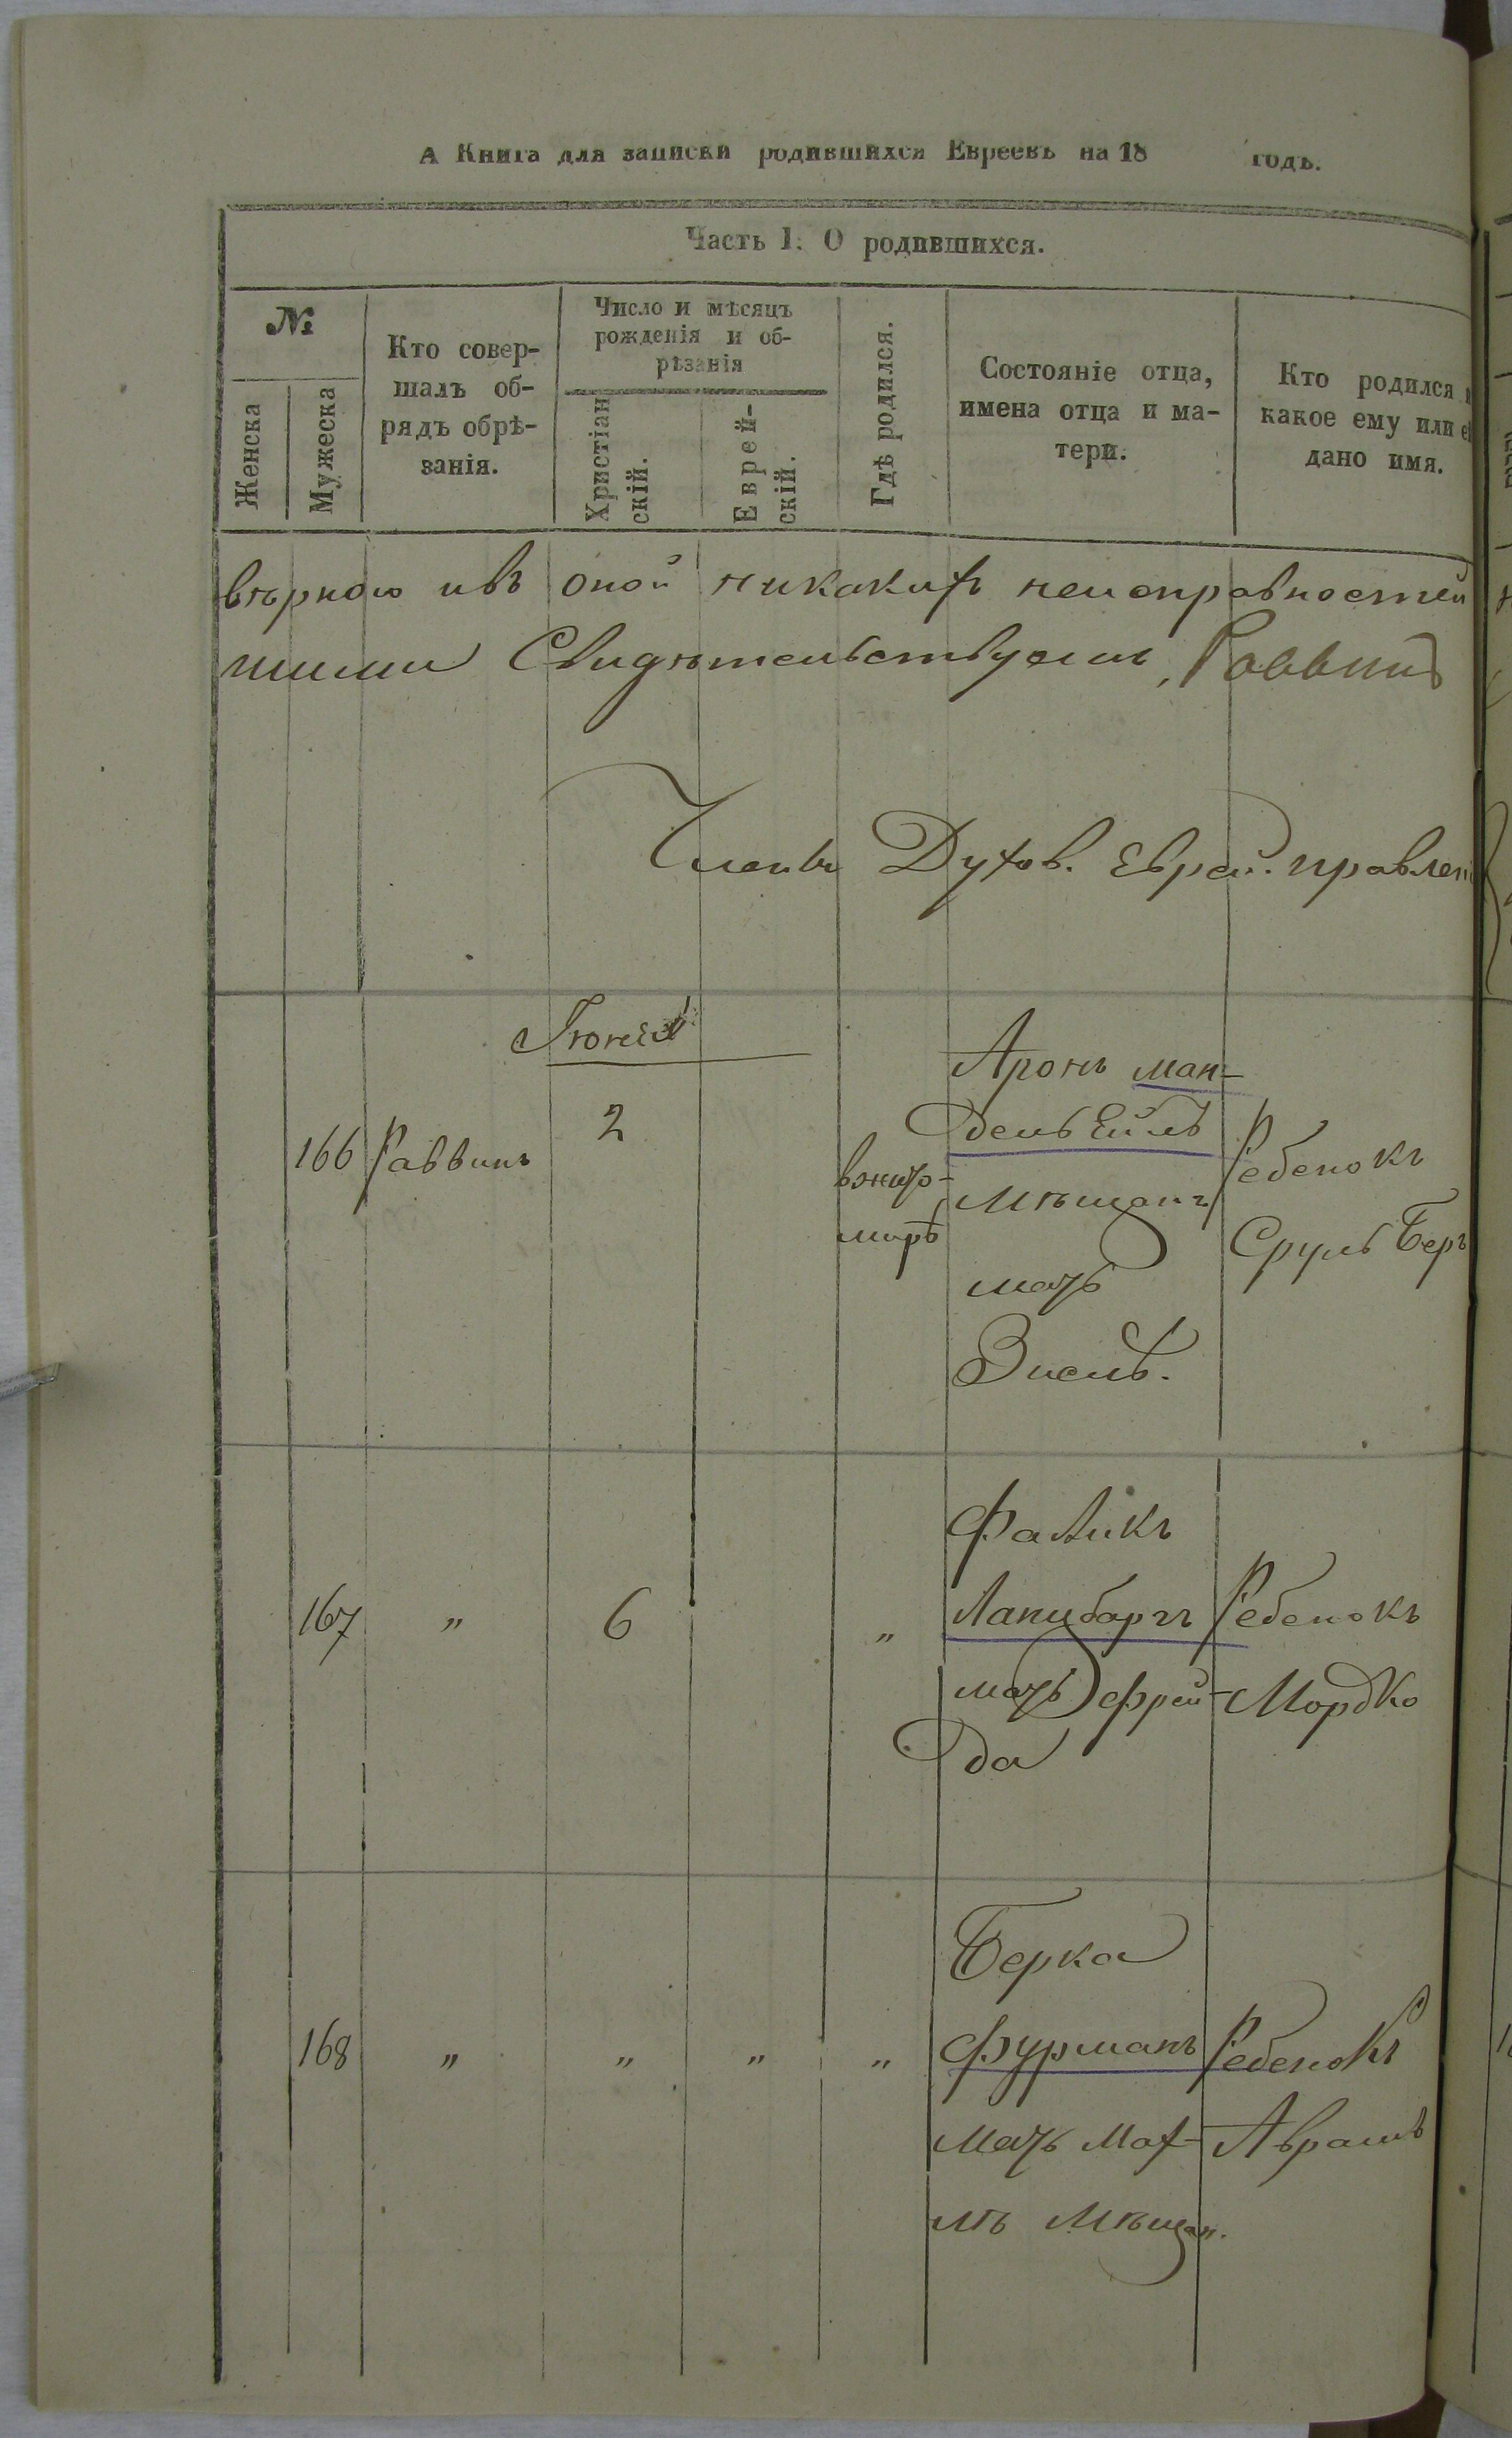 А Книга для записки родившихся Евреевъ на 18 годъ.
Часть I. О родившихся.
№
Женска
Мужеска
Кто совер-
шалъ об-
рядъ обрѣ-
занія.
Число и мѣсяцъ
рожденія и об-
рѣзанія
Христіан
скій.
Еврей-
скій.
Гдѣ родился.
Состояніе отца,
имена отца и ма-
тери.
Кто родился
какое ему или
дано имя.
вѣрною и въ оной никакихъ неисправностей
Свидѣтельствуемъ, Раввинъ
Члены Духов. Еврей. правлен
166
Раввинъ
2
въ жито-
мирѣ
Аронъ Ман-
дельейлъ
Мѣщанъ
мать
Зисль.
Ребенокъ
Сруль Беръ
167
"
6
"
Фаликъ
мать Фрей-
да
Ребенокъ
Мордко
168
"
"
"
"
Берка
Фурманъ
мать Мах-
лѣ Мѣщан.
Ребенокъ
Аврамъ